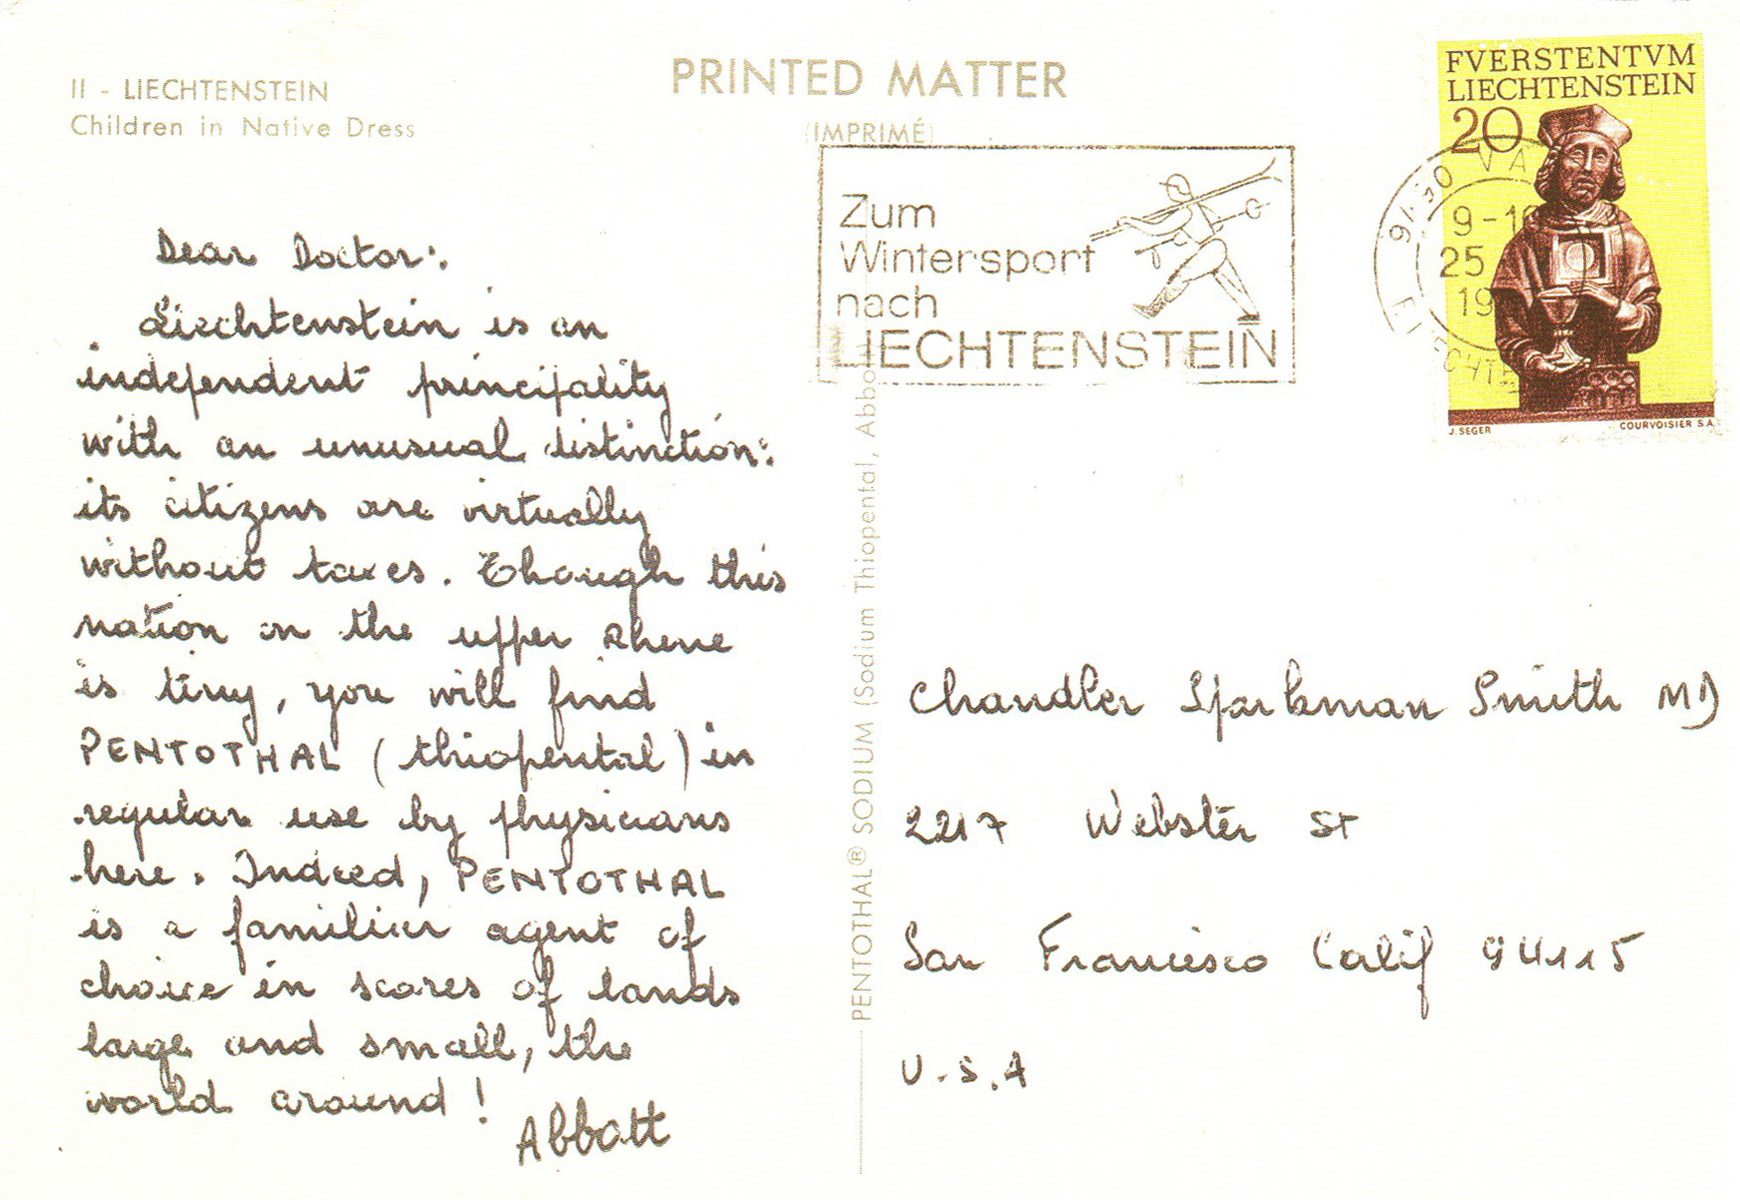 II - LIECHTENSTEIN
Children in Native Dress
PRINTED MATTER
(IMPRIMÉ)
Zum
Wintersport
nach
LIECHTENSTEIN
FVERSTENTVM
LIECHTENSTEIN
20
J. SEGER
COURVOISIER S.A.
9490 VA
9-10
25
19
LIECHTE
Dear Doctor:
Liechtenstein is an
independent principality
with an unusual distinction:
its citizens are virtually
without taxes. Though this
nation on the upper Rhine
is tiny, you will find
PENTOTHAL (thiopental) in
regular use by physicians
here. Indeed, PENTOTHAL
is a familiar agent of
choice in scores of lands
large and small, the
world around!
Abbott
PENTOTHAL® SODIUM (Sodium Thiopental, Abbott)
Chandler Sparkman Smith MD
2217 Webster St
San Francisco Calif 94115
U.S.A